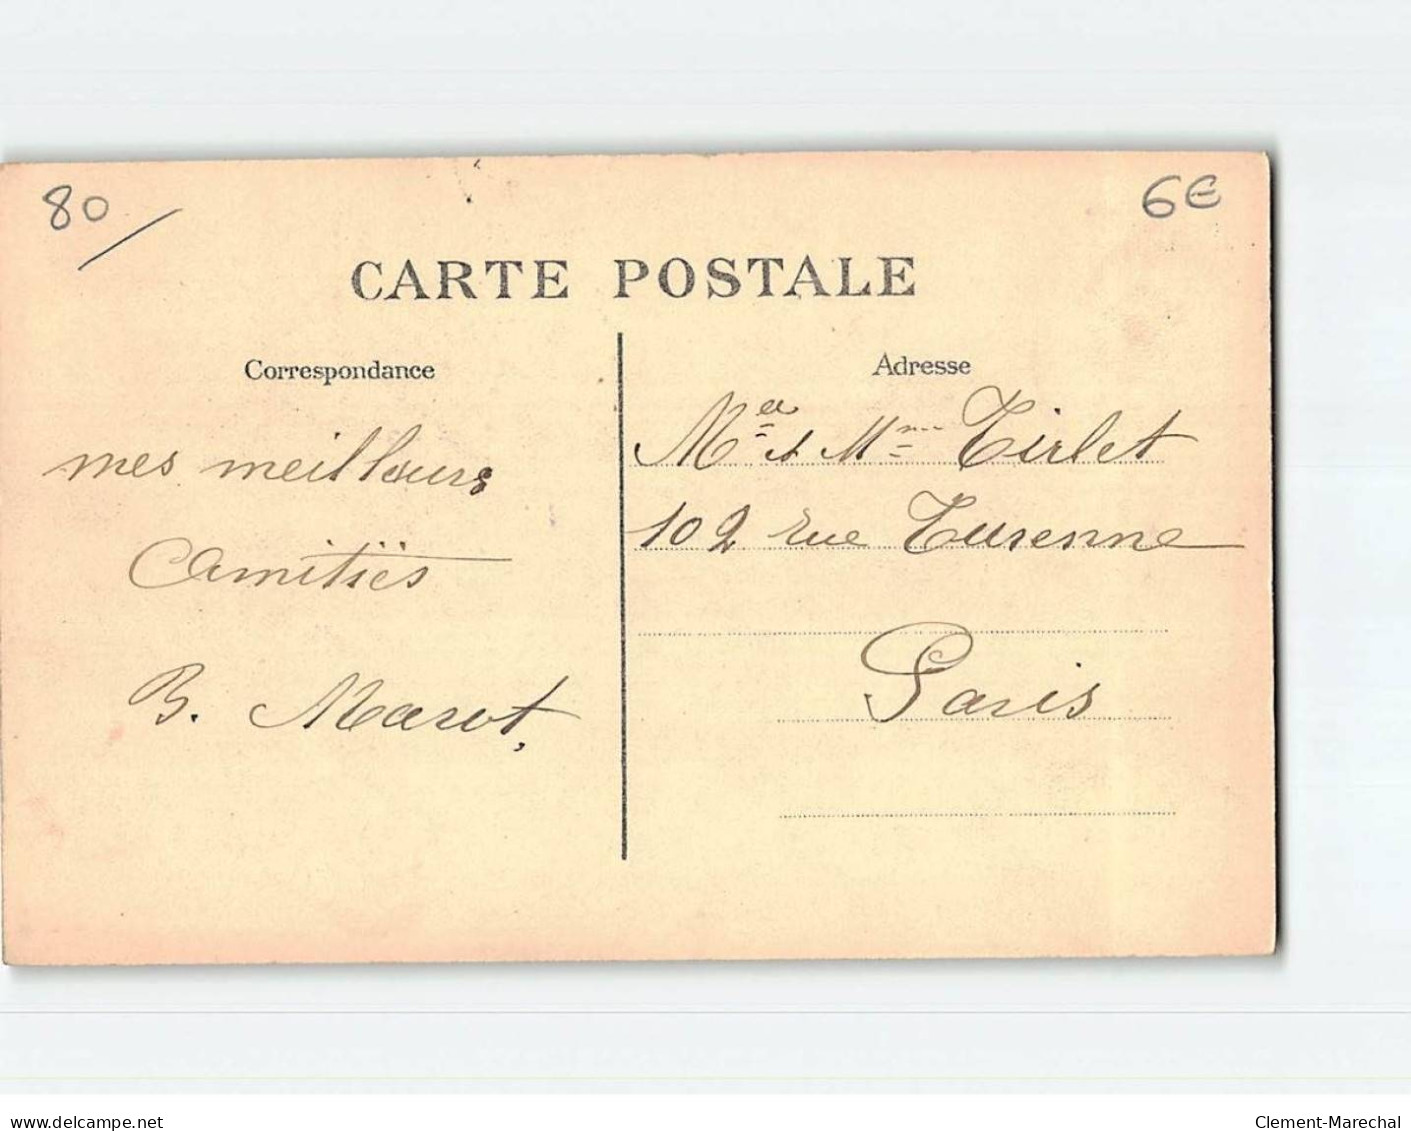 80/
6€
CARTE POSTALE
Correspondance
mes meilleurs
Amitiés
B. Marot,
Adresse
Mr et Mme Tirlet
102 rue Turenne
Paris
www.delcampe.net
Clement-Marechal